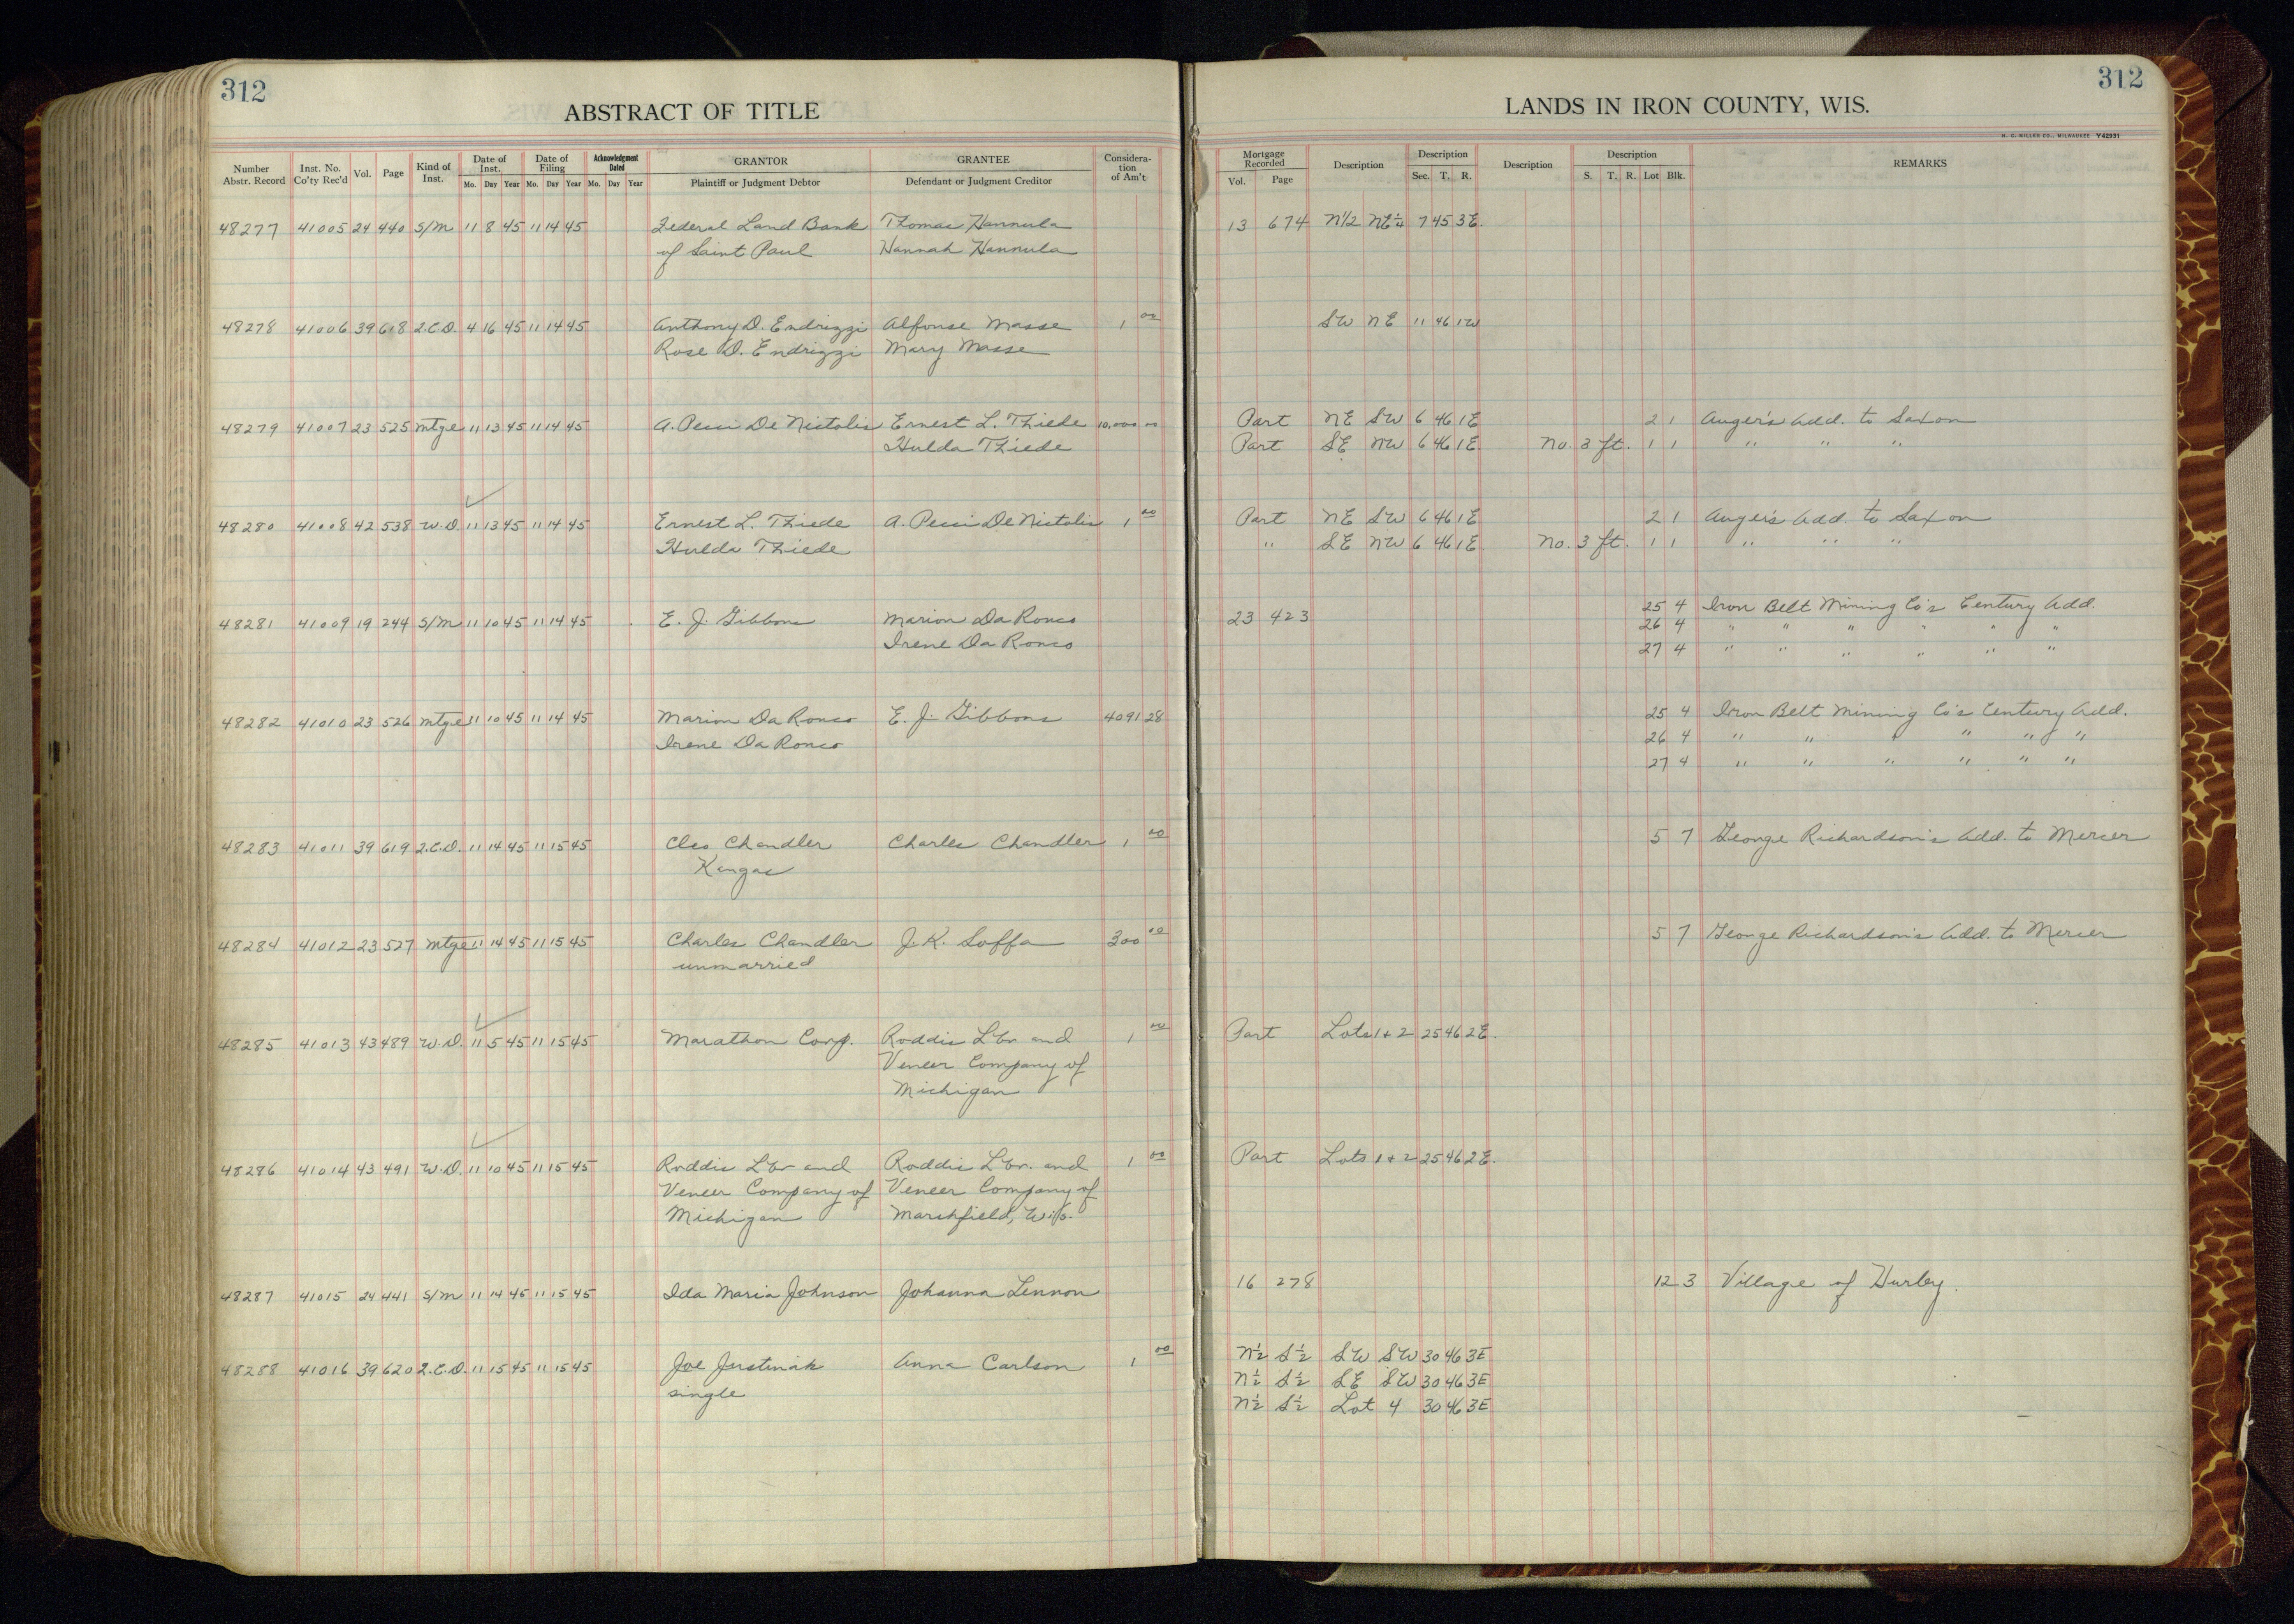 312
ABSTRACT OF TITLE
Number Abstr. Record | Inst. No. Co'ty Rec'd | Vol. | Page | Kind of Inst. | Date of Inst. Mo. Day Year | Date of Filing Mo. Day Year | Acknowledgment Dated Mo. Day Year | GRANTOR Plaintiff or Judgment Debtor | GRANTEE Defendant or Judgment Creditor | Consideration of Am't
48277 41005 24 440 S/M 11 8 45 11 14 45 Federal Land Bank Thomas Hannula
of Saint Paul Hannah Hannula
48278 41006 39 618 Q.C.D. 4 16 45 11 14 45 Anthony D. Endrizzi Alfonse Masse 1 00
Rose D. Endrizzi Mary Masse
48279 41007 23 525 Mtge 11 13 45 11 14 45 A. Pecci De Nictolis Ernest L. Thiede 10,000 00
Hulda Thiede
48280 41008 42 538 W.D. 11 13 45 11 14 45 Ernest L. Thiede A. Pecci De Nictolis 1 00
Hulda Thiede
48281 41009 19 244 S/M 11 10 45 11 14 45 E. J. Gibbons Marion Da Ronco
Irene Da Ronco
48282 41010 23 526 Mtge 11 10 45 11 14 45 Marion Da Ronco E. J. Gibbons 4091 28
Irene Da Ronco
48283 41011 39 619 Q.C.D. 11 14 45 11 15 45 Cleo Chandler Charles Chandler 1 00
Kangas
48284 41012 23 527 Mtge 11 14 45 11 15 45 Charles Chandler J. K. Soffa 300 00
unmarried
48285 41013 43 489 W.D. 11 5 45 11 15 45 Marathon Corp. Roddis Lbr and 1 00
Veneer Company of
Michigan
48286 41014 43 491 W.D. 11 10 45 11 15 45 Roddis Lbr and Roddis Lbr. and 1 00
Veneer Company of Veneer Company of
Michigan Marshfield, Wis.
48287 41015 24 441 S/M 11 14 45 11 15 45 Ida Maria Johnson Johanna Lennon
48288 41016 39 620 Q.C.D. 11 15 45 11 15 45 Joe Justinak Anna Carlson 1 00
single
312
LANDS IN IRON COUNTY, WIS.
H. C. MILLER CO., MILWAUKEE Y42931
Mortgage Recorded Vol. Page | Description | Description Sec. T. R. | Description | Description S. T. R. Lot Blk. | REMARKS
13 674 N1/2 NE¼ 7 45 3E.
SW NE 11 46 1W
Part NE SW 6 46 1E 2 1 Auger's Add. to Saxon
Part SE NW 6 46 1E No. 3 ft. 1 1 " " "
Part NE SW 6 46 1E 2 1 Auger's Add. to Saxon
" SE NW 6 46 1E No. 3 ft. 1 1 " " "
25 4 Iron Belt Mining Co's Century Add.
23 423 26 4 " " " " " "
27 4 " " " " " "
25 4 Iron Belt Mining Co's Century Add.
26 4 " " " " " "
27 4 " " " " " "
5 7 George Richardson's Add. to Mercer
5 7 George Richardson's Add. to Mercer
Part Lots 1+2 25 46 2E.
Part Lots 1+2 25 46 2E.
16 278 12 3 Village of Hurley.
N½ S½ SW SW 30 46 3E
N½ S½ SE SW 30 46 3E
N½ S½ Lot 4 30 46 3E